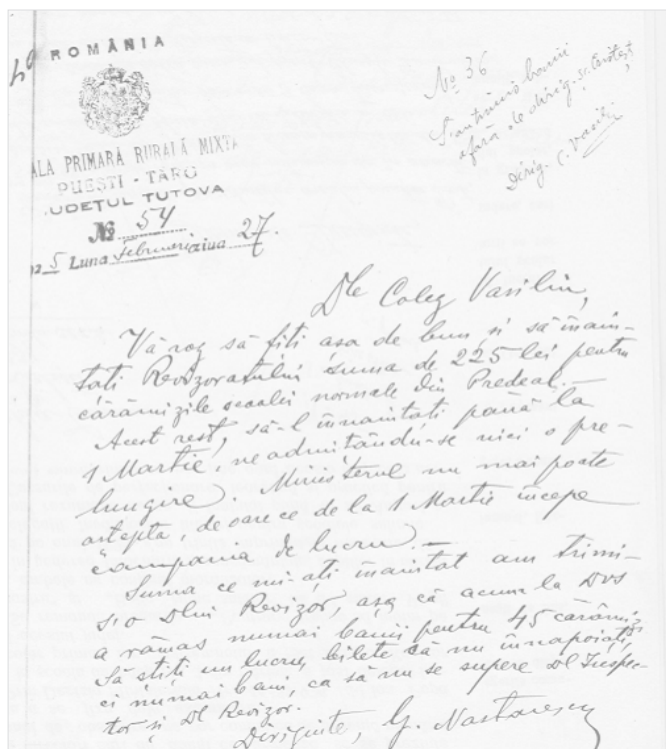 ROMÂNIA
ALA PRIMARĂ RURALĂ MIXTĂ
PUEȘTI - TÂRG
JUDEȚUL TUTOVA
№ 54
5 Luna februarie ziua 27.
No 36
S'au trimis banii
afară de dirig. șc.
Dirig. C. Vasiliu
Dle Coleg Vasiliu,
Vă rog să fiți așa de bun și să înain-
tați Revizoratului suma de 225 lei pentru
cărămizile școalei normale din Predeal.—
Acest rest, să-l înnaintați până la
1 Martie, ne admitându-se nici o pre-
lungire. Ministerul nu mai poate
aștepta, de oare ce de la 1 Martie începe
campania de lucru.—
Suma ce mi-ați înaintat am trimi-
s'o Dlui Revizor, așa că acum la Dvs
a rămas numai banii pentru 45 cărămizi
Să stiți un lucru, bilete să nu înnapoiați,
ci numai bani, ca să nu se supere Dl Inspec-
tor și Dl Revizor.
Diriginte, G. Nastasescu